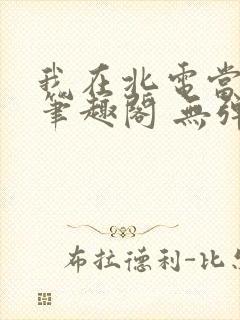 我在北電當
筆趣閣 無彈
布拉德利-比